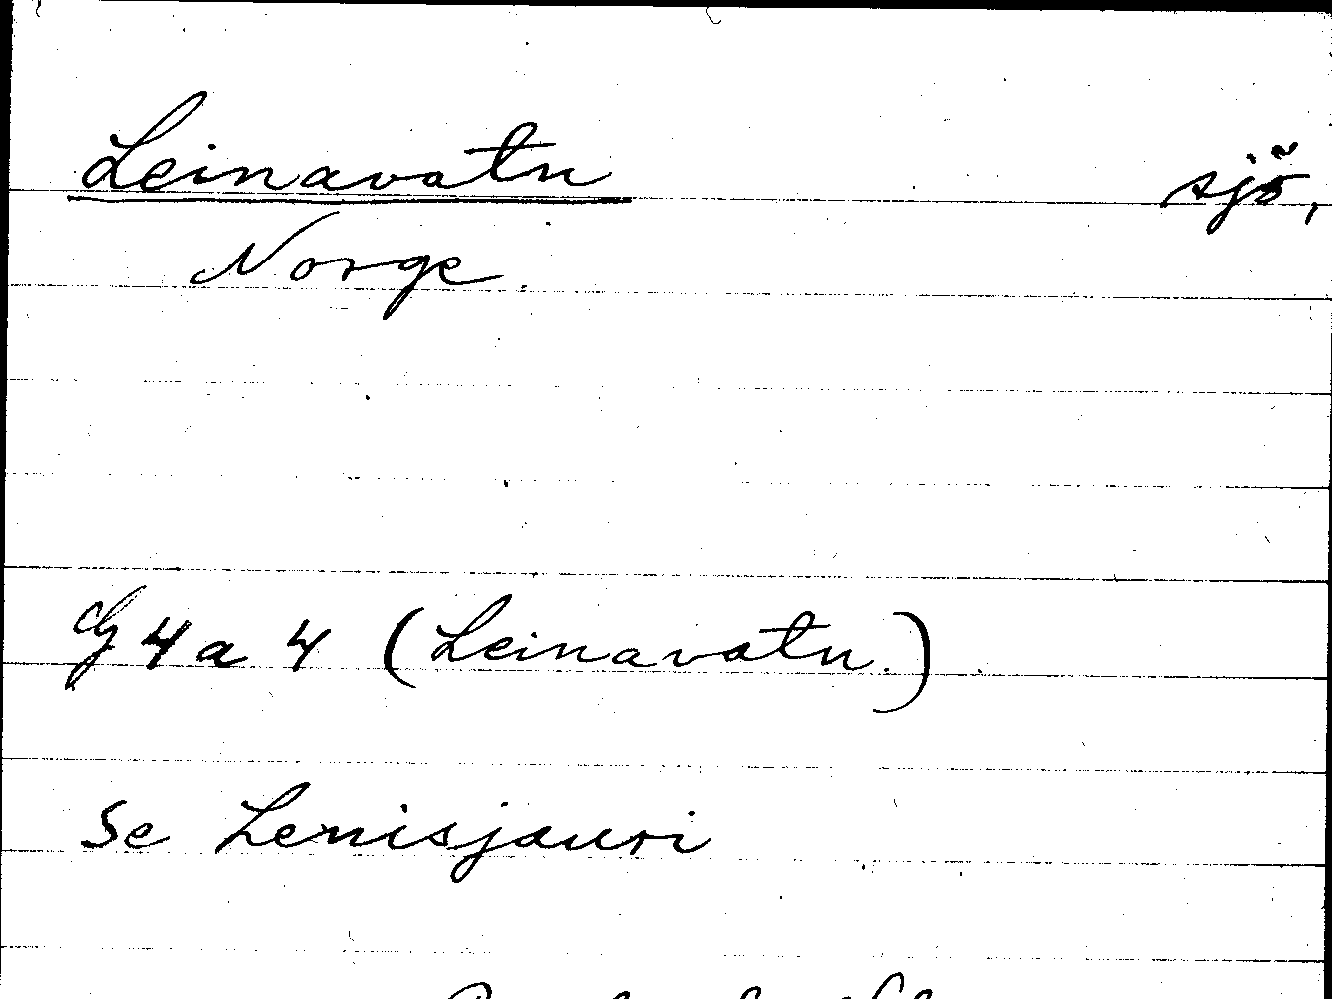 Leinavatn sjö,
Norge.
G 4 a 4 (Leinavatn.)
Se Lenisjauri